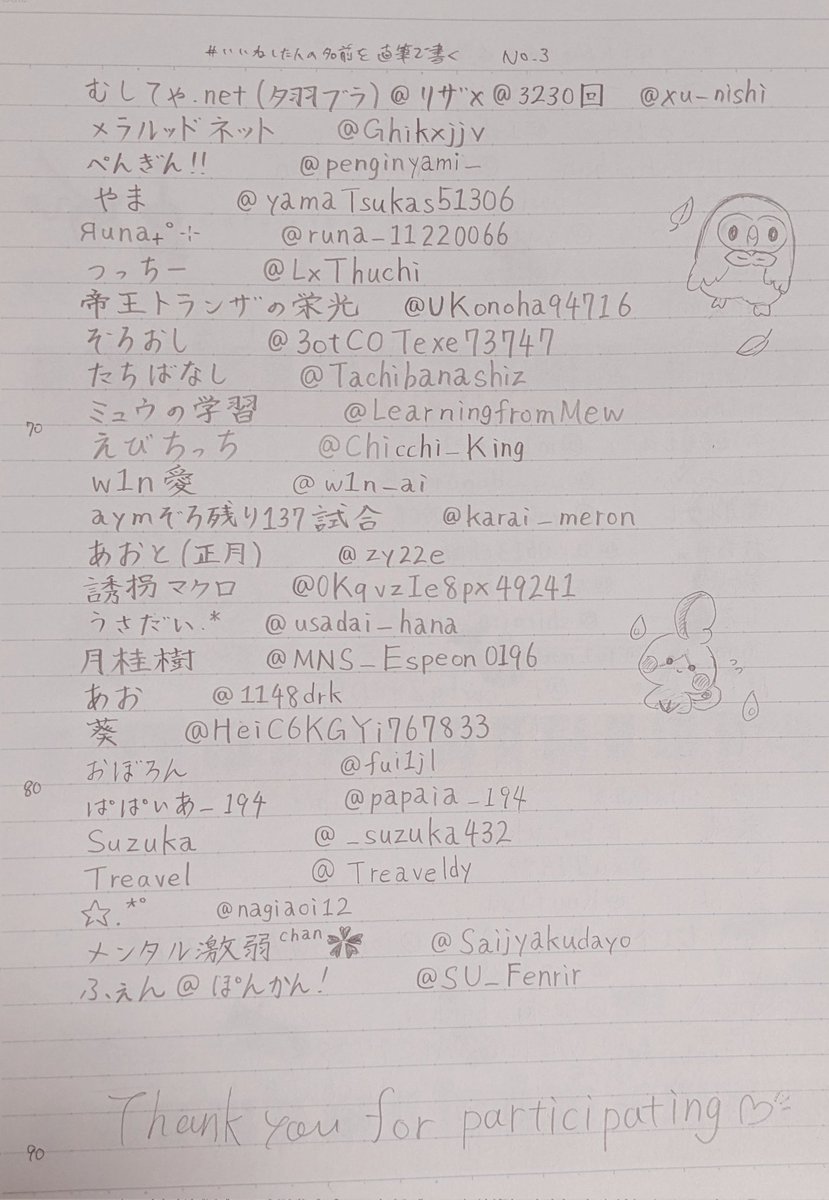 #いいねした人の名前を直筆で書く No.3
むしてゃ.net(夕羽ブラ)@リザx@3230回 @xu_nishi
メラルッドネット @Ghikxjjv
ぺんぎん!! @penginyami_
やま @yamaTsukas51306
Яuna₊°⊹ @runa_11220066
つっちー @LxThuchi
帝王トランザの栄光 @UKonoha94716
ぞろおし @3otCOTexe73747
たちばなし @Tachibanashiz
70 ミュウの学習 @LearningfromMew
えびちっち @Chicchi_King
w1n愛 @w1n_ai
aymぞろ残り137試合 @karai_meron
あおと(正月) @zy22e
誘拐マクロ @0KqvzIe8px49241
うさだい.* @usadai_hana
月桂樹 @MNS_Espeon0196
あお @1148drk
葵 @HeiC6KGYi767833
80 おぼろん @fui1jl
ぱぱいあ_194 @papaia_194
Suzuka @_suzuka432
Treavel @Treaveldy
☆.*° @nagiaoi12
メンタル激弱chan @Saijyakudayo
ふぇん@ぽんかん! @SU_Fenrir
Thank you for participating♡
90